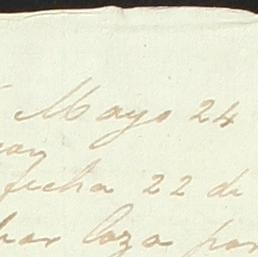 Mayo 24
fecha 22 de
loza par